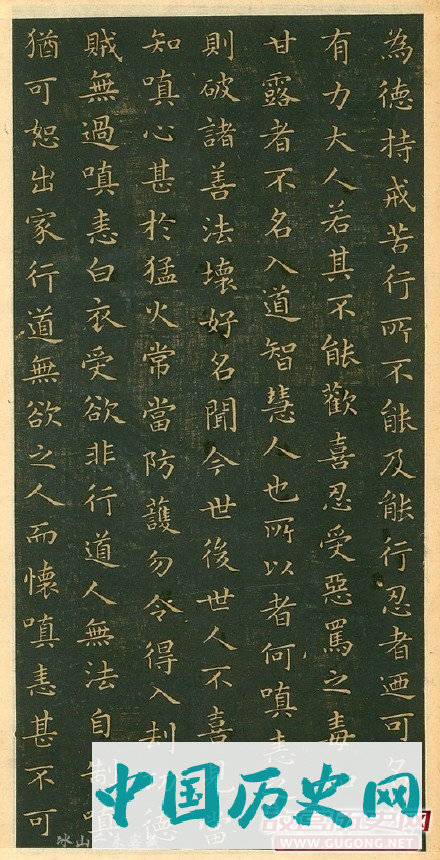 為德持戒苦行所不能及能行忍者迺可名
有力大人若其不能歡喜忍受惡罵之毒
甘露者不名入道智慧人也所以者何嗔恚
則破諸善法壞好名聞今世後世人不喜見當
知嗔心甚於猛火常當防護勿令得入劫德
賊無過嗔恚白衣受欲非行道人無法自制嗔
猶可恕出家行道無欲之人而懷嗔恚甚不可
中国历史网
WWW.GUGONG.NET
冰山